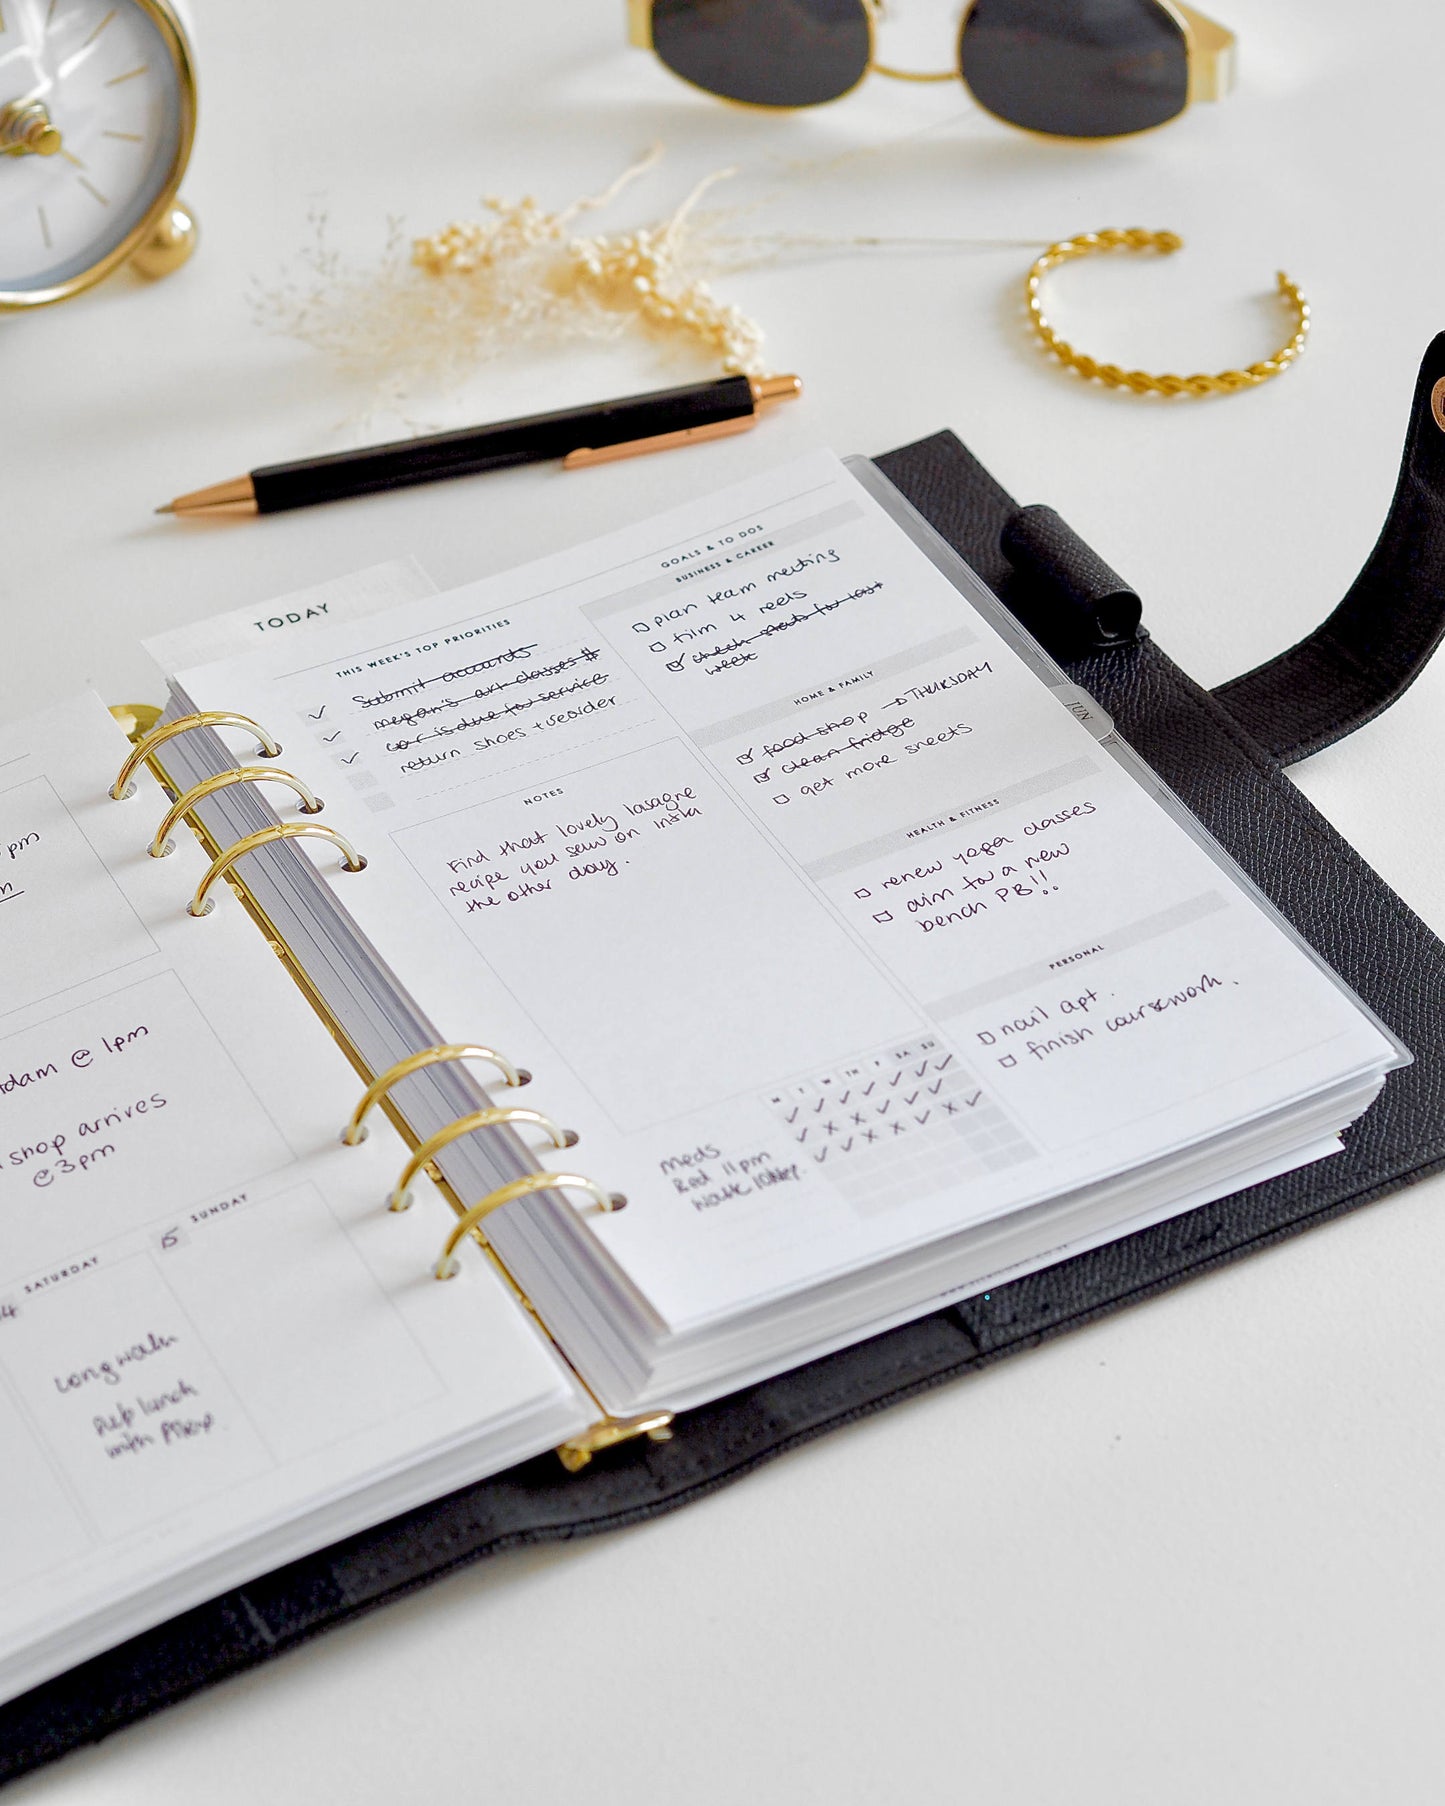 TODAY
THIS WEEK'S TOP PRIORITIES
Submit accounts
megan's art classes #
car is due for service
return shoes + reorder
NOTES
Find that lovely lasagne
recipe you saw on insta
the other day.
M T W TH F SA SU
meds
Bed 11pm
walk
GOALS & TO DOS
BUSINESS & CAREER
plan team meeting
film 4 reels
check stats for last
week
HOME & FAMILY
food shop → THURSDAY
clean fridge
get more sheets
HEALTH & FITNESS
renew yoga classes
aim for a new
bench PB!!
PERSONAL
nail apt.
finish coursework.
JUN
pm
@ 1pm
shop arrives
@ 3pm
SATURDAY
15 SUNDAY
Long walk
lunch
with